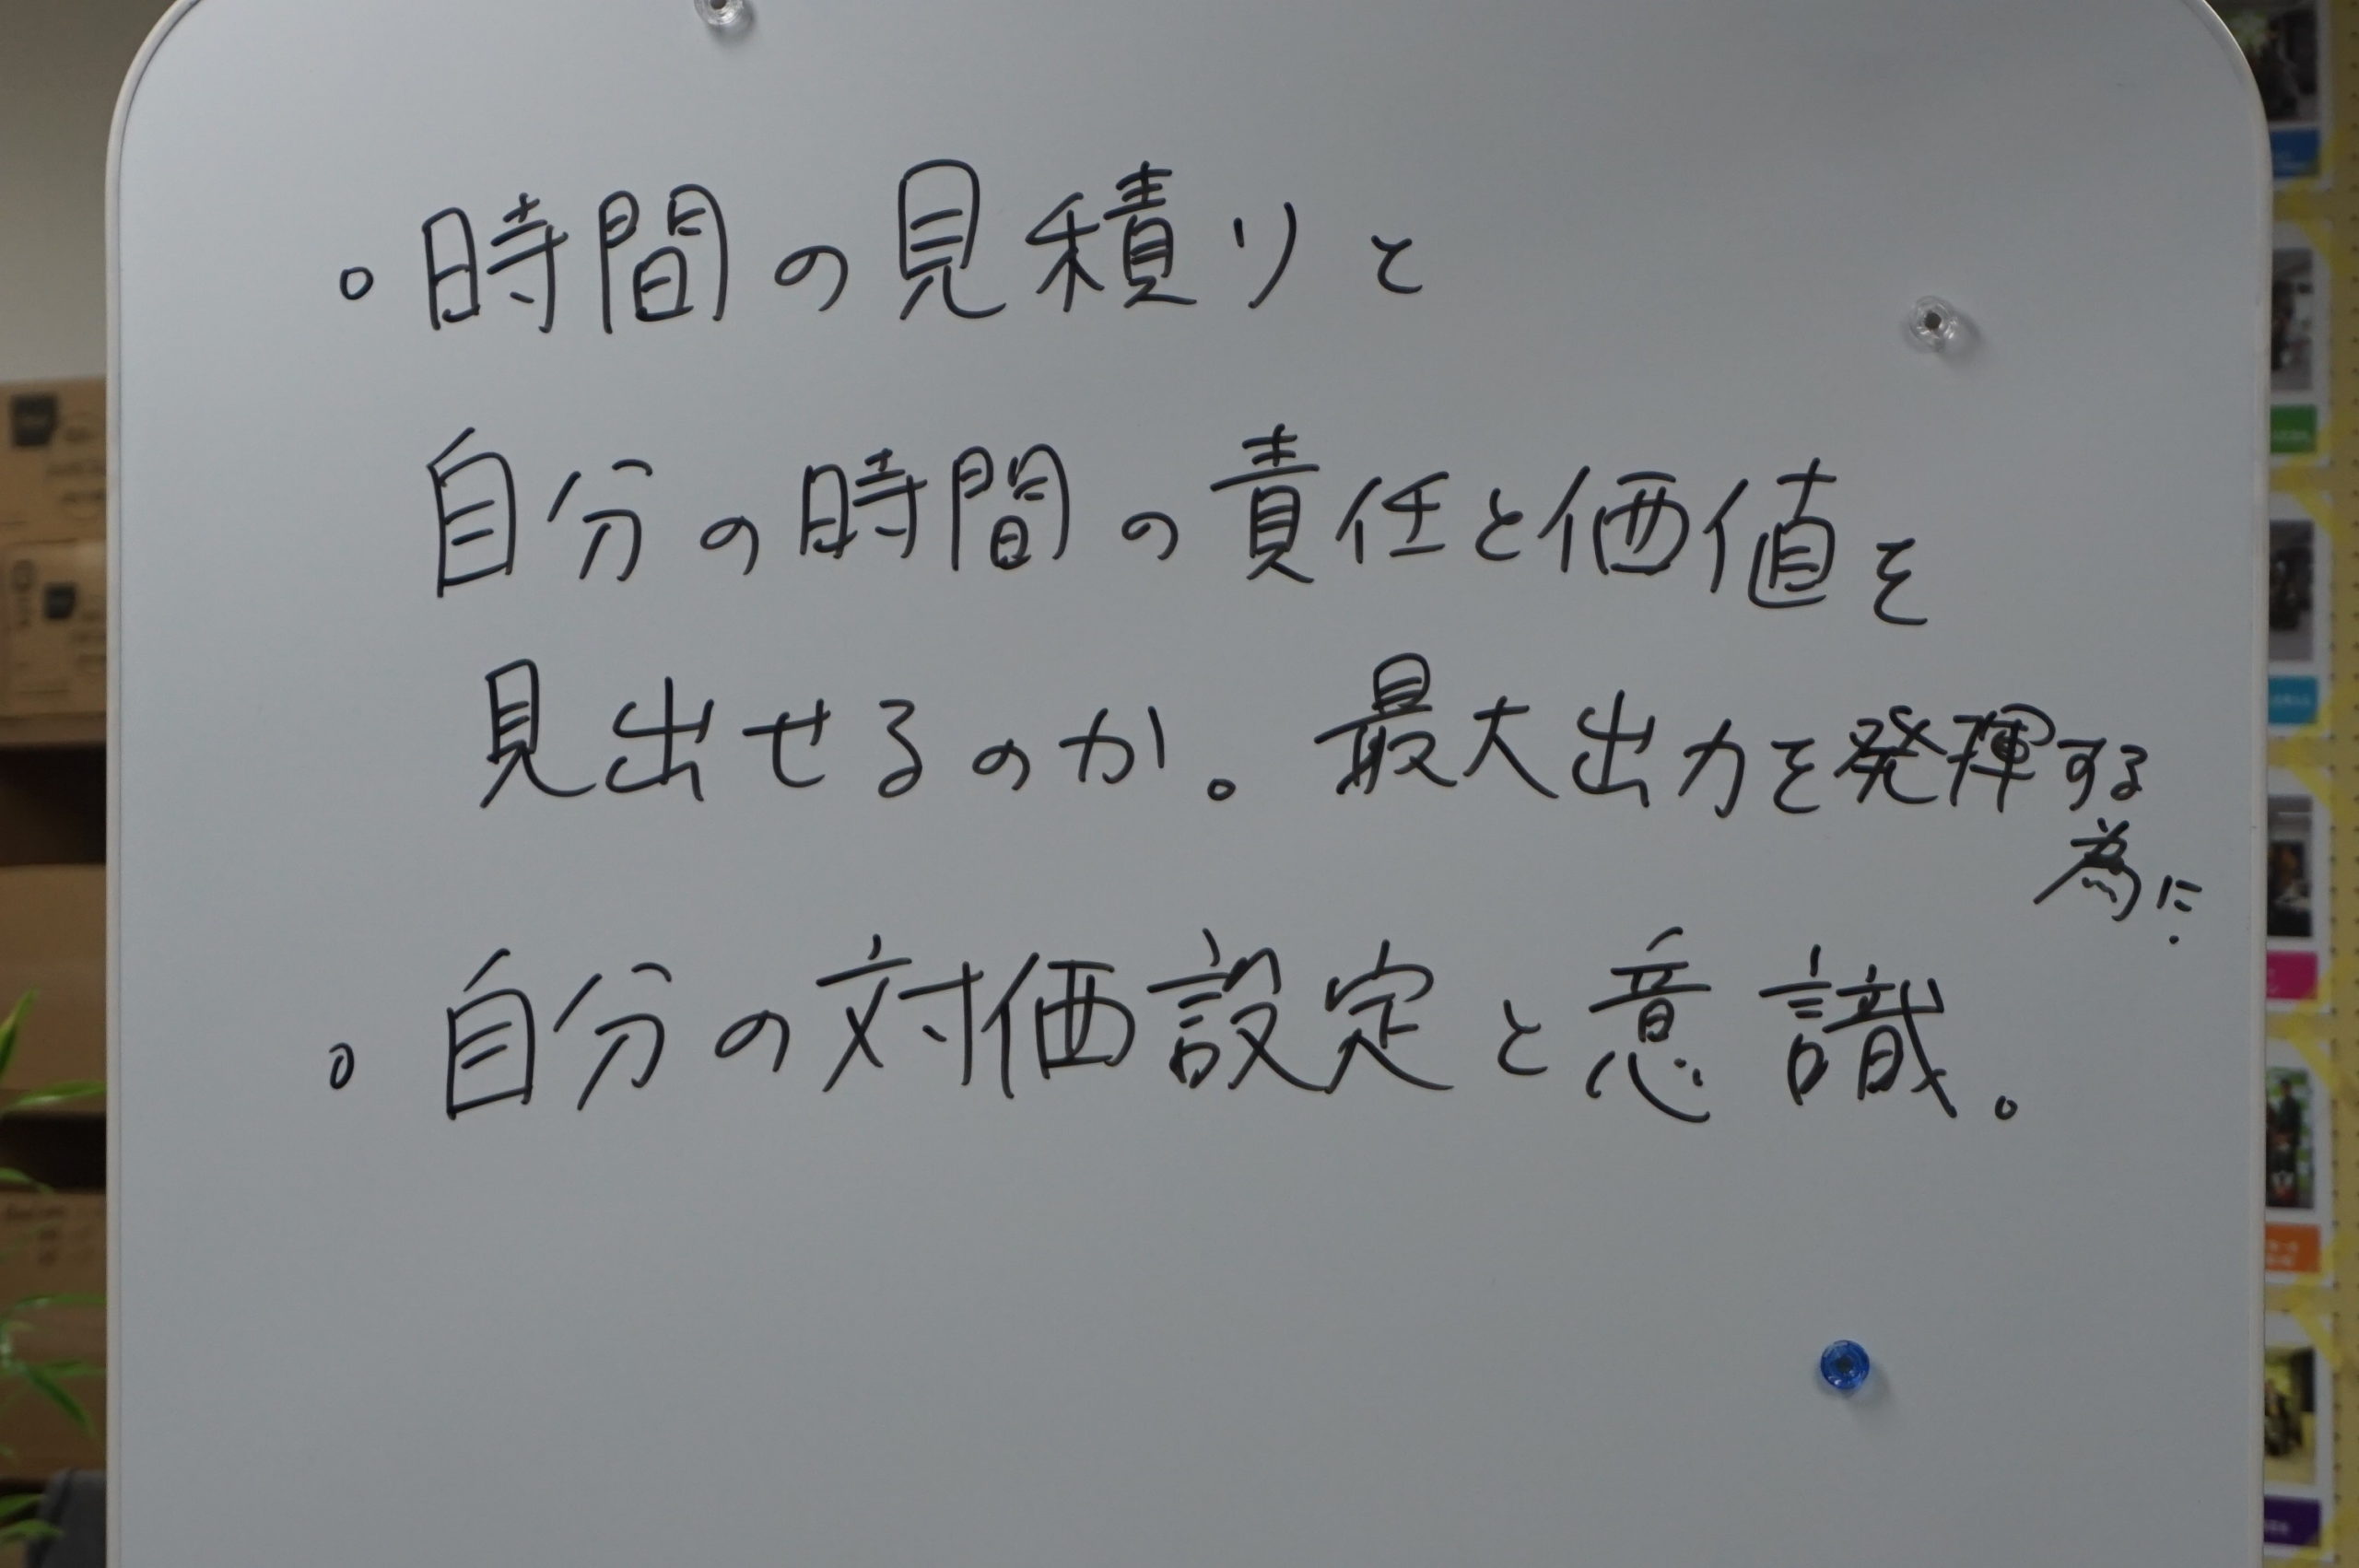 。時間の見積りと
自分の時間の責任と価値を
見出せるのか。最大出力を発揮する
為に.
。自分の対価設定と意識。